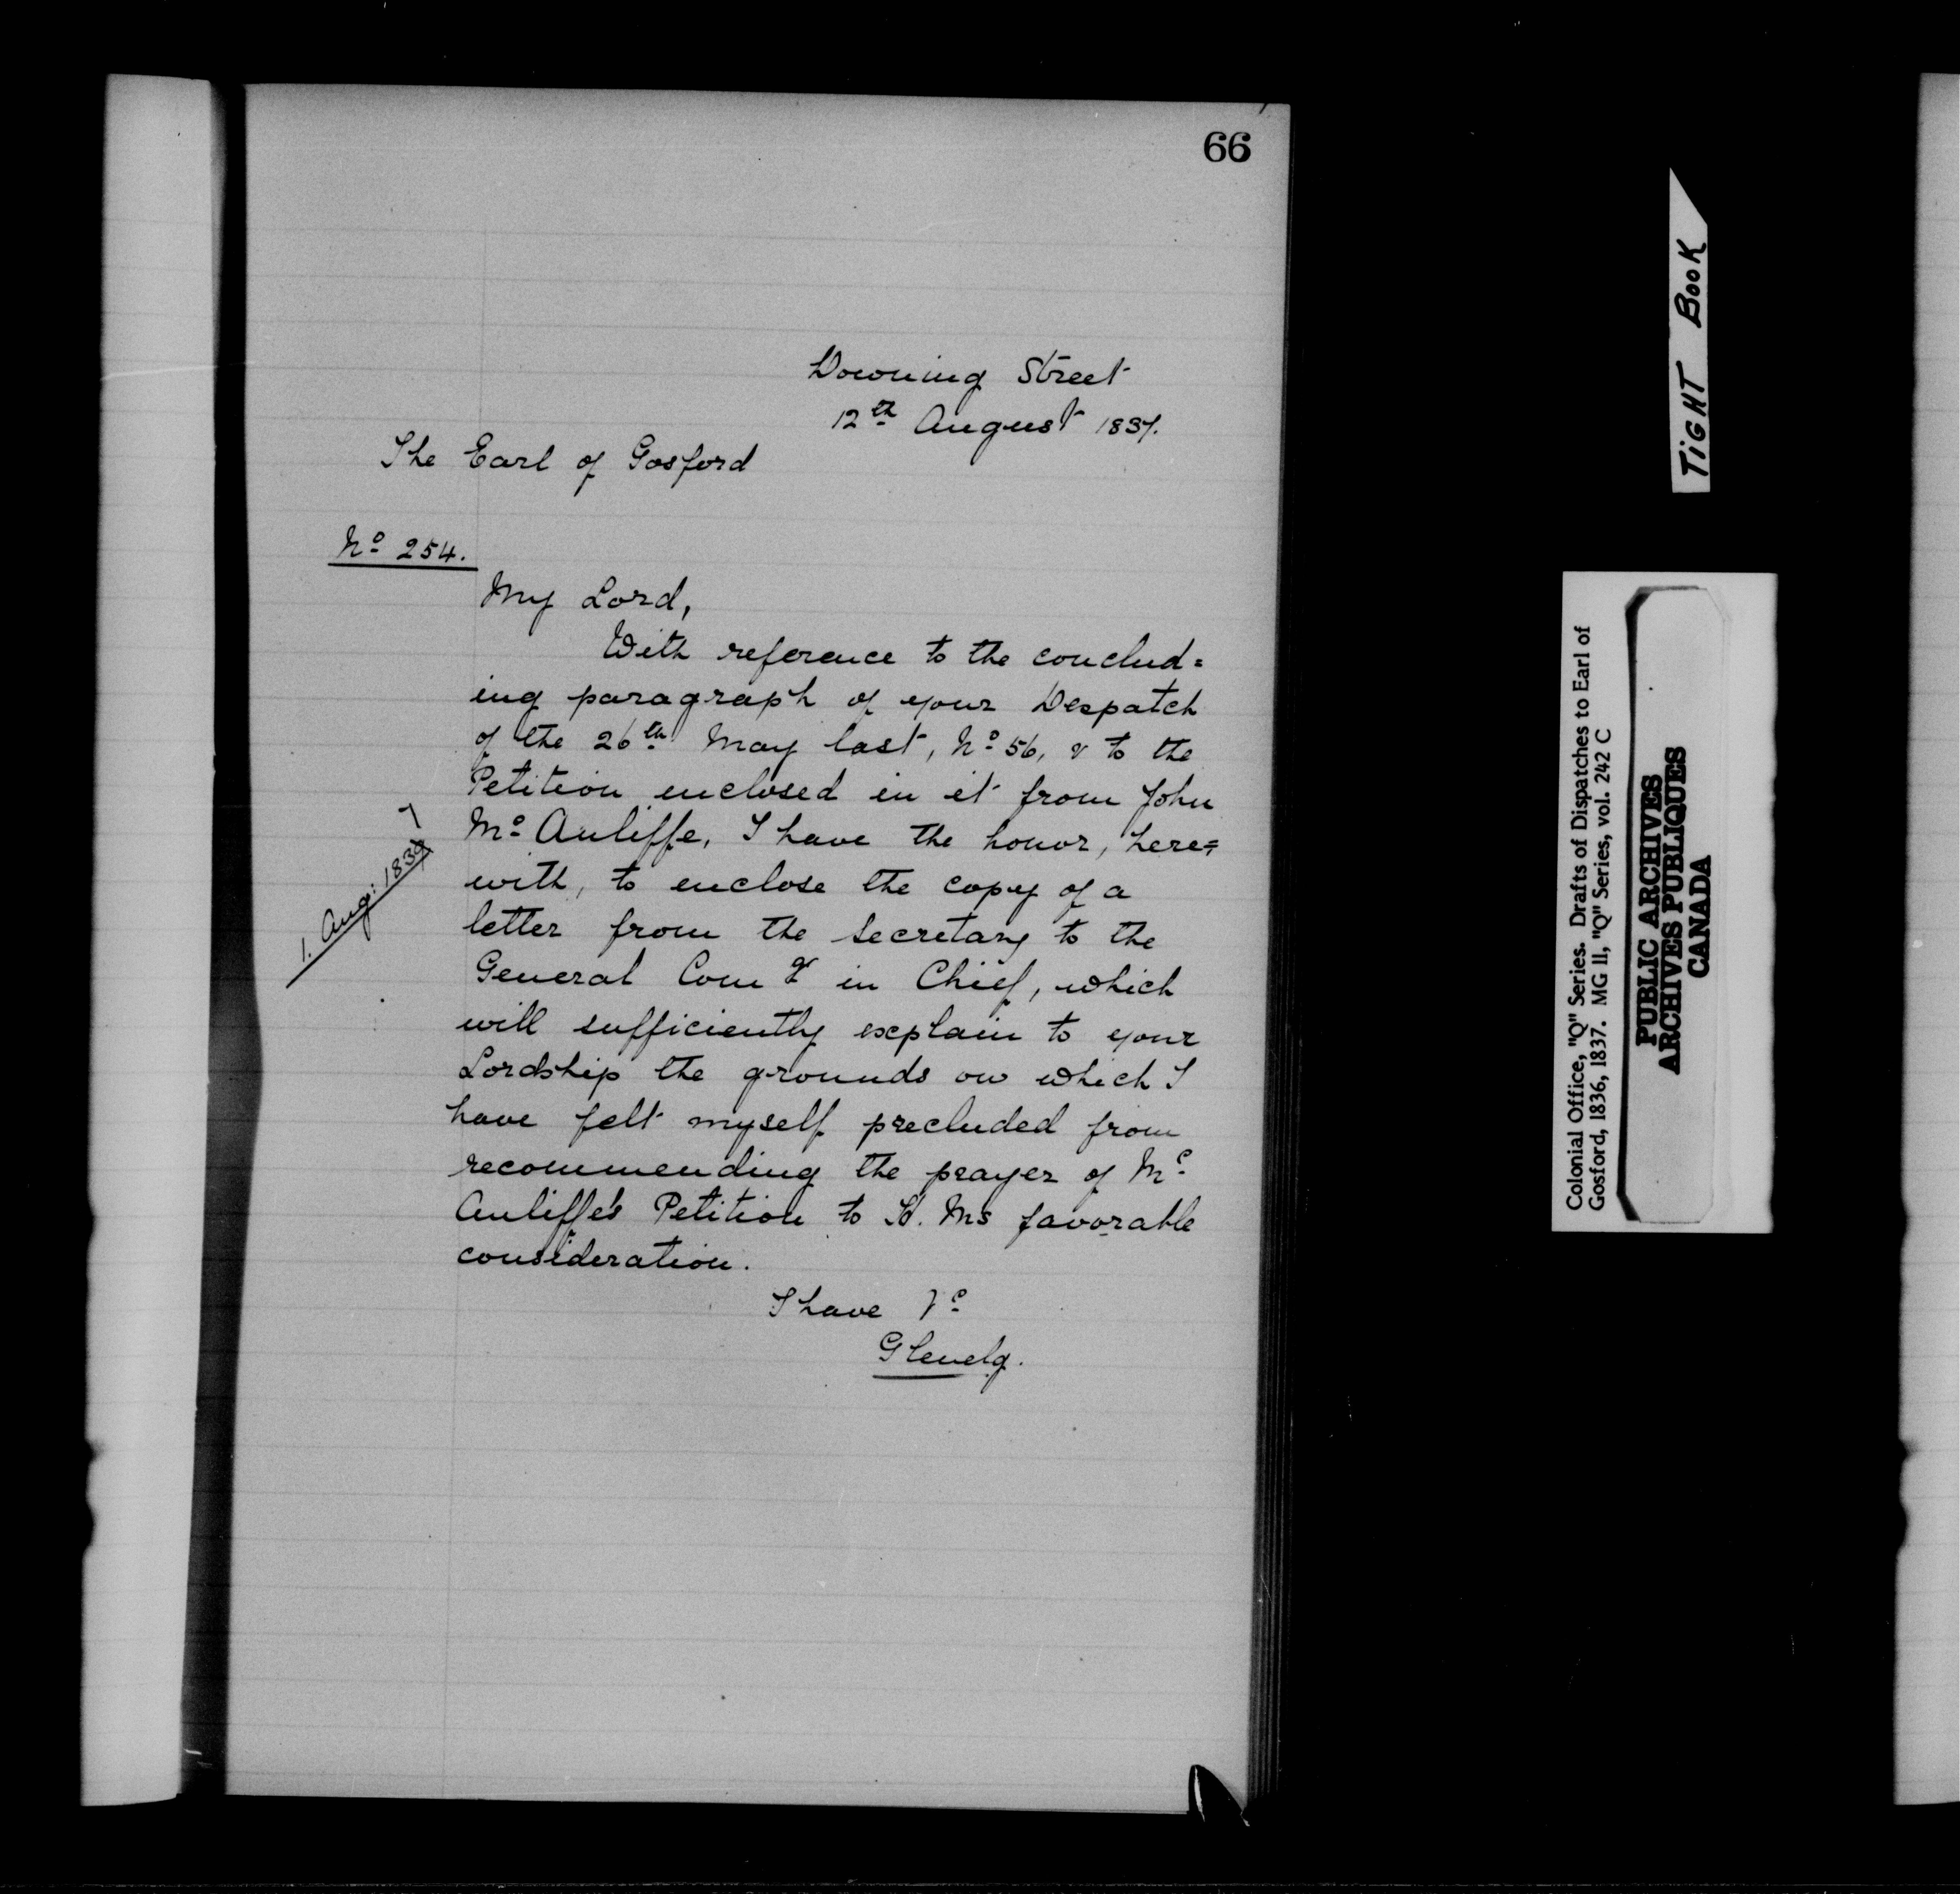 66
Downing Street
12th August 1837.
The Earl of Gosford
No 254.
My Lord,
With reference to the conclud=
ing paragraph of your Despatch
of the 26th May last, No 56, & to the
Petition enclosed in it from John
Mc Auliffe, I have the honor, here=
with, to enclose the copy of a
letter from the Secretary to the
General Comg in Chief, which
will sufficiently explain to your
Lordship the grounds on which I
have felt myself precluded from
recommending the prayer of Mc
Auliffe's Petition to H. Ms favorable
consideration.
I have &c
Glenelg.
1. Aug: 1837
TiGHT BOOK
Colonial Office, "Q" Series. Drafts of Dispatches to Earl of
Gosford, 1836, 1837. MG 11, "Q" Series, vol. 242 C
PUBLIC ARCHIVES
ARCHIVES PUBLIQUES
CANADA